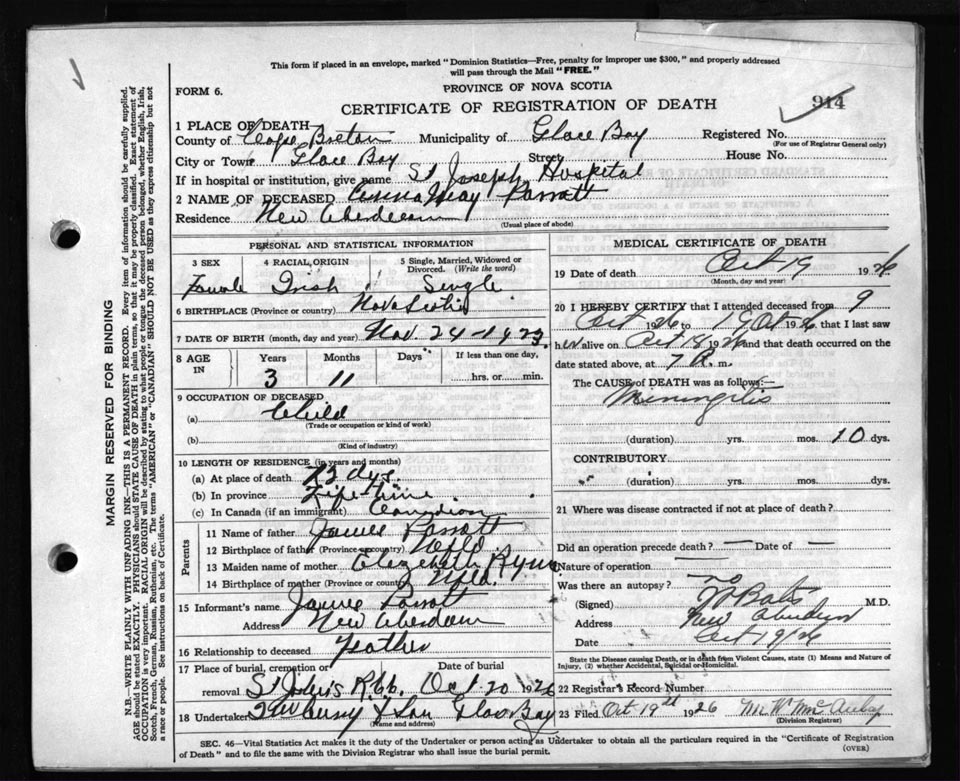 This form if placed in an envelope, marked "Dominion Statistics—Free, penalty for improper use $300," and properly addressed
will pass through the Mail "FREE."
FORM 6.
PROVINCE OF NOVA SCOTIA
CERTIFICATE OF REGISTRATION OF DEATH
914
1 PLACE OF DEATH
County of Cape Breton Municipality of Glace Bay Registered No.
(For use of Registrar General only)
City or Town Glace Bay Street House No.
If in hospital or institution, give name St Joseph Hospital
2 NAME OF DECEASED Anna May Parrott
Residence New Aberdeen
(Usual place of abode)
PERSONAL AND STATISTICAL INFORMATION
3 SEX 4 RACIAL ORIGIN 5 Single, Married, Widowed or
Divorced. (Write the word)
Female Irish Single
6 BIRTHPLACE (Province or country) Nova Scotia
7 DATE OF BIRTH (month, day and year) Nov. 24-1923.
8 AGE IN Years Months Days If less than one day,
3 11 hrs. or min.
9 OCCUPATION OF DECEASED
(a) Child
(Trade or occupation or kind of work)
(b)
(Kind of industry)
10 LENGTH OF RESIDENCE (in years and months)
(a) At place of death dys.
(b) In province Life time
(c) In Canada (if an immigrant) Canadian
Parents
11 Name of father James Parrott
12 Birthplace of father (Province or country) Nfld.
13 Maiden name of mother Elizabeth
14 Birthplace of mother (Province or country) Nfld.
15 Informant's name James Parrott
Address New Aberdeen
16 Relationship to deceased Father
17 Place of burial, cremation or Date of burial
removal St John's Oct. 20 1926
18 Undertaker & Son Glace Bay
(Name and address)
MEDICAL CERTIFICATE OF DEATH
19 Date of death Oct 19 1926
(Month, day and year)
20 I HEREBY CERTIFY that I attended deceased from 9
Oct 1926 to 19 Oct 1926, that I last saw
her alive on Oct 18 1926 and that death occurred on the
date stated above, at 7 m.
The CAUSE of DEATH was as follows:—
Meningitis
(duration) yrs. mos. 10 dys.
CONTRIBUTORY
(duration) yrs. mos. dys.
21 Where was disease contracted if not at place of death?
Did an operation precede death? — Date of —
Nature of operation —
Was there an autopsy? no
(Signed) M.D.
Address New Aberdeen
Date Oct 19/26
State the Disease causing Death, or in death from Violent Causes, state (1) Means and Nature of
Injury, (2) whether Accidental, Suicidal or Homicidal.
22 Registrar's Record Number
23 Filed Oct 19th 1926
(Division Registrar)
SEC. 46—Vital Statistics Act makes it the duty of the Undertaker or person acting as Undertaker to obtain all the particulars required in the "Certificate of Registration
of Death" and to file the same with the Division Registrar who shall issue the burial permit.
(OVER)
MARGIN RESERVED FOR BINDING
N.B.—WRITE PLAINLY WITH UNFADING INK—THIS IS A PERMANENT RECORD. Every item of information should be carefully supplied.
AGE should be stated EXACTLY. PHYSICIANS should STATE CAUSE OF DEATH in plain terms, so that it may be properly classified. Exact statement of
OCCUPATION is very important. RACIAL ORIGIN will be described by stating to what people or tongue the deceased person belonged, whether English, Irish,
Scotch, French, German, Russian, Ruthenian, etc. The terms "AMERICAN" or "CANADIAN" SHOULD NOT BE USED as they express citizenship but not
a race or people. See instructions on back of Certificate.